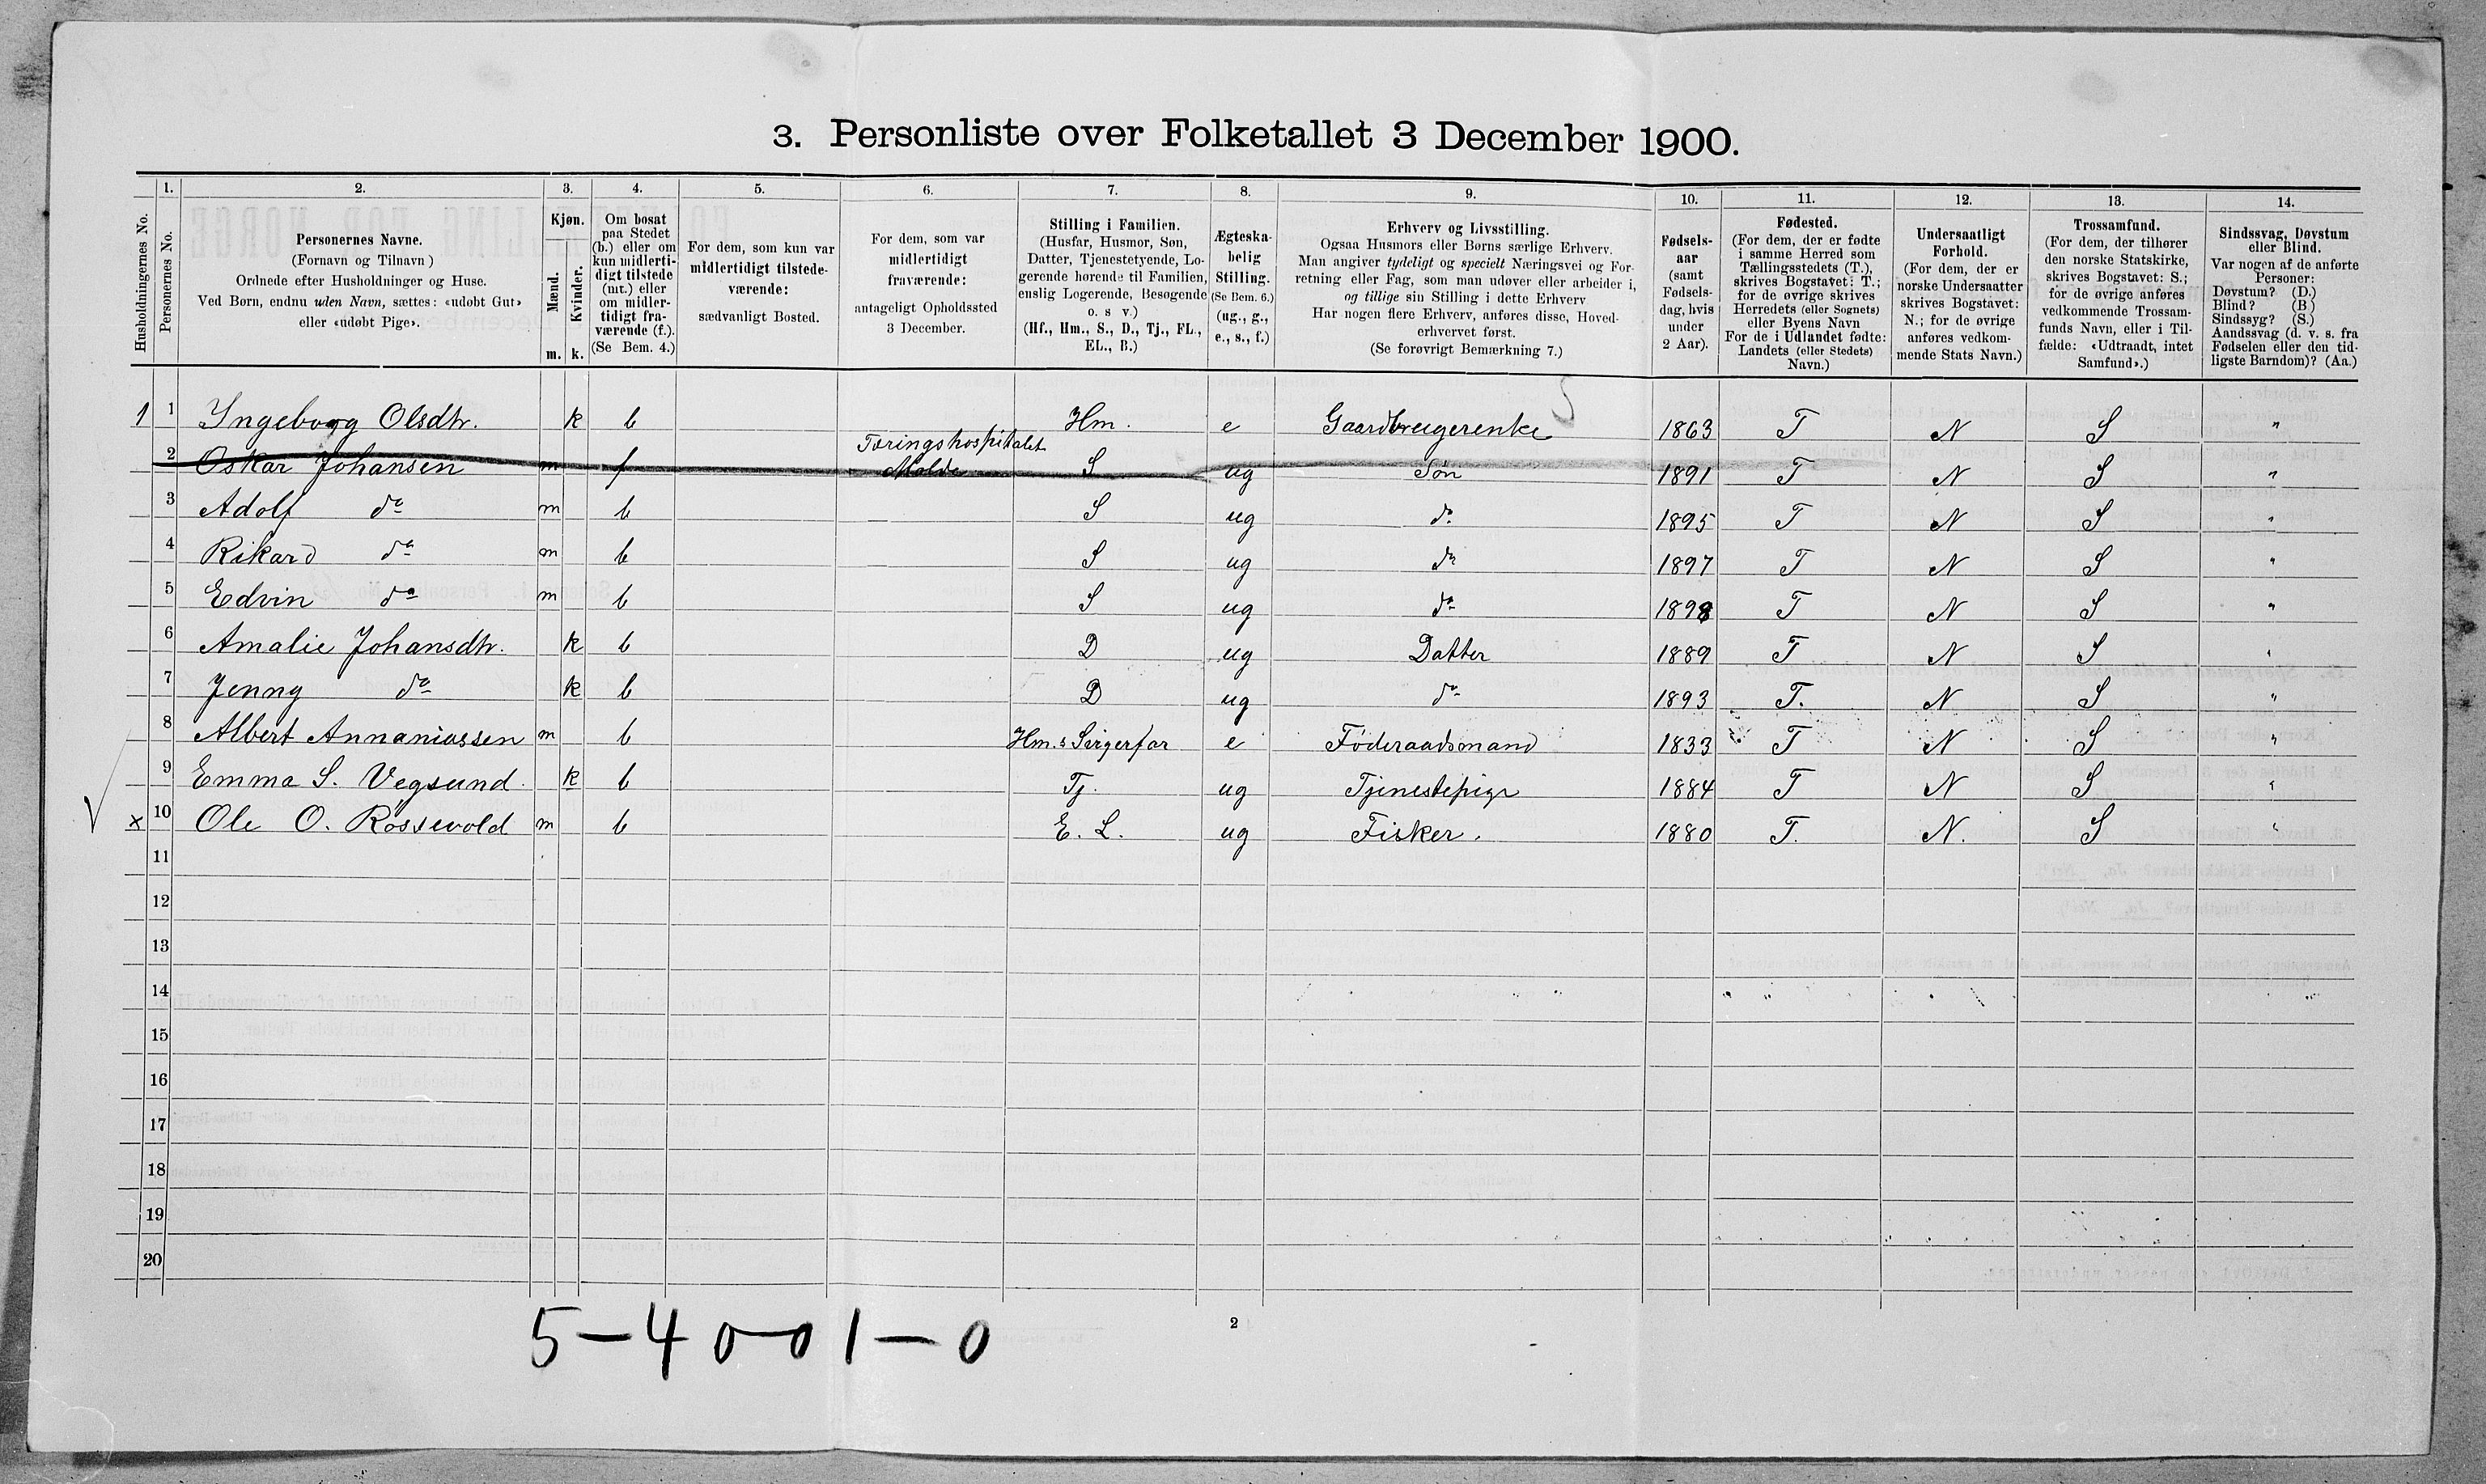 3. Personliste over Folketallet 3 December 1900.
1. 2. 3. 4. 5. 6. 7. 8. 9. 10. 11. 12. 13. 14.
Husholdningernes No.
Personernes No.
Personernes Navne.
(Fornavn og Tilnavn)
Ordnede efter Husholdninger og Huse.
Ved Børn, endnu uden Navn, sættes: «udøbt Gut»
eller «udøbt Pige».
Kjøn.
Mænd.
Kvinder.
m. k.
Om bosat
paa Stedet
(b.) eller om
kun midlerti-
digt tilstede
(mt.) eller
om midler-
tidigt fra-
værende (f.).
(Se Bem. 4.)
For dem, som kun var
midlertidigt tilstede-
værende:
sædvanligt Bosted.
For dem, som var
midlertidigt
fraværende:
antageligt Opholdssted
3 December.
Stilling i Familien.
(Husfar, Husmor, Søn,
Datter, Tjenestetyende, Lo-
gerende hørende til Familien,
enslig Logerende, Besøgende
o. s v.)
(Hf., Hm., S., D., Tj., FL.,
EL., B.)
Ægteska-
belig
Stilling.
(Se Bem. 6.)
(ug., g.,
e., s., f.)
Erhverv og Livsstilling.
Ogsaa Husmors eller Børns særlige Erhverv.
Man angiver tydeligt og specielt Næringsvei og For-
retning eller Fag, som man udøver eller arbeider i,
og tillige sin Stilling i dette Erhverv
Har nogen flere Erhverv, anføres disse, Hoved-
erhvervet først.
(Se forøvrigt Bemærkning 7.)
Fødsels-
aar
(samt
Fødsels-
dag, hvis
under
2 Aar).
Fødested.
(For dem, der er fødte
i samme Herred som
Tællingsstedets (T.),
skrives Bogstavet: T.;
for de øvrige skrives
Herredets (eller Sognets)
eller Byens Navn
For de i Udlandet fødte:
Landets (eller Stedets)
Navn.)
Undersaatligt
Forhold.
(For dem, der er
norske Undersaatter
skrives Bogstavet:
N.; for de øvrige
anføres vedkom-
mende Stats Navn.)
Trossamfund.
(For dem, der tilhører
den norske Statskirke,
skrives Bogstavet: S.;
for de øvrige anføres
vedkommende Trossam-
funds Navn, eller i Til-
fælde: «Udtraadt, intet
Samfund».)
Sindssvag, Døvstum
eller Blind.
Var nogen af de anførte
Personer:
Døvstum? (D.)
Blind? (B)
Sindssyg? (S.)
Aandssvag (d. v. s. fra
Fødselen eller den tid-
ligste Barndom)? (Aa.)
1 1 Ingeborg Olsdtr. k b Hm. e Gaardbrugerenke 1863 T N S "
2 Oskar Johansen m f Tæringshospitalet Molde S ug Søn 1891 T N S "
3 Adolf do m b S ug do 1895 T N S "
4 Rikard do m b S ug do 1897 T N S "
5 Edvin do m b S ug do 1898 T N S "
6 Amalie Johansdtr. k b D ug Datter 1889 T N S "
7 Jenny do k b D ug do 1893 T. N S "
8 Albert Annaniassen m b Hm.s Svigerfar e Føderaadsmand 1833 T N S "
9 Emma S. Vegsund. k b Tj. ug Tjenestepige 1884 T N S "
x 10 Ole O. Røssevold m b E. L. ug Fisker. 1880 T. N. S "
11
12
13
14
15
16
17
18
19
20
5-4 0-0 1-0
2